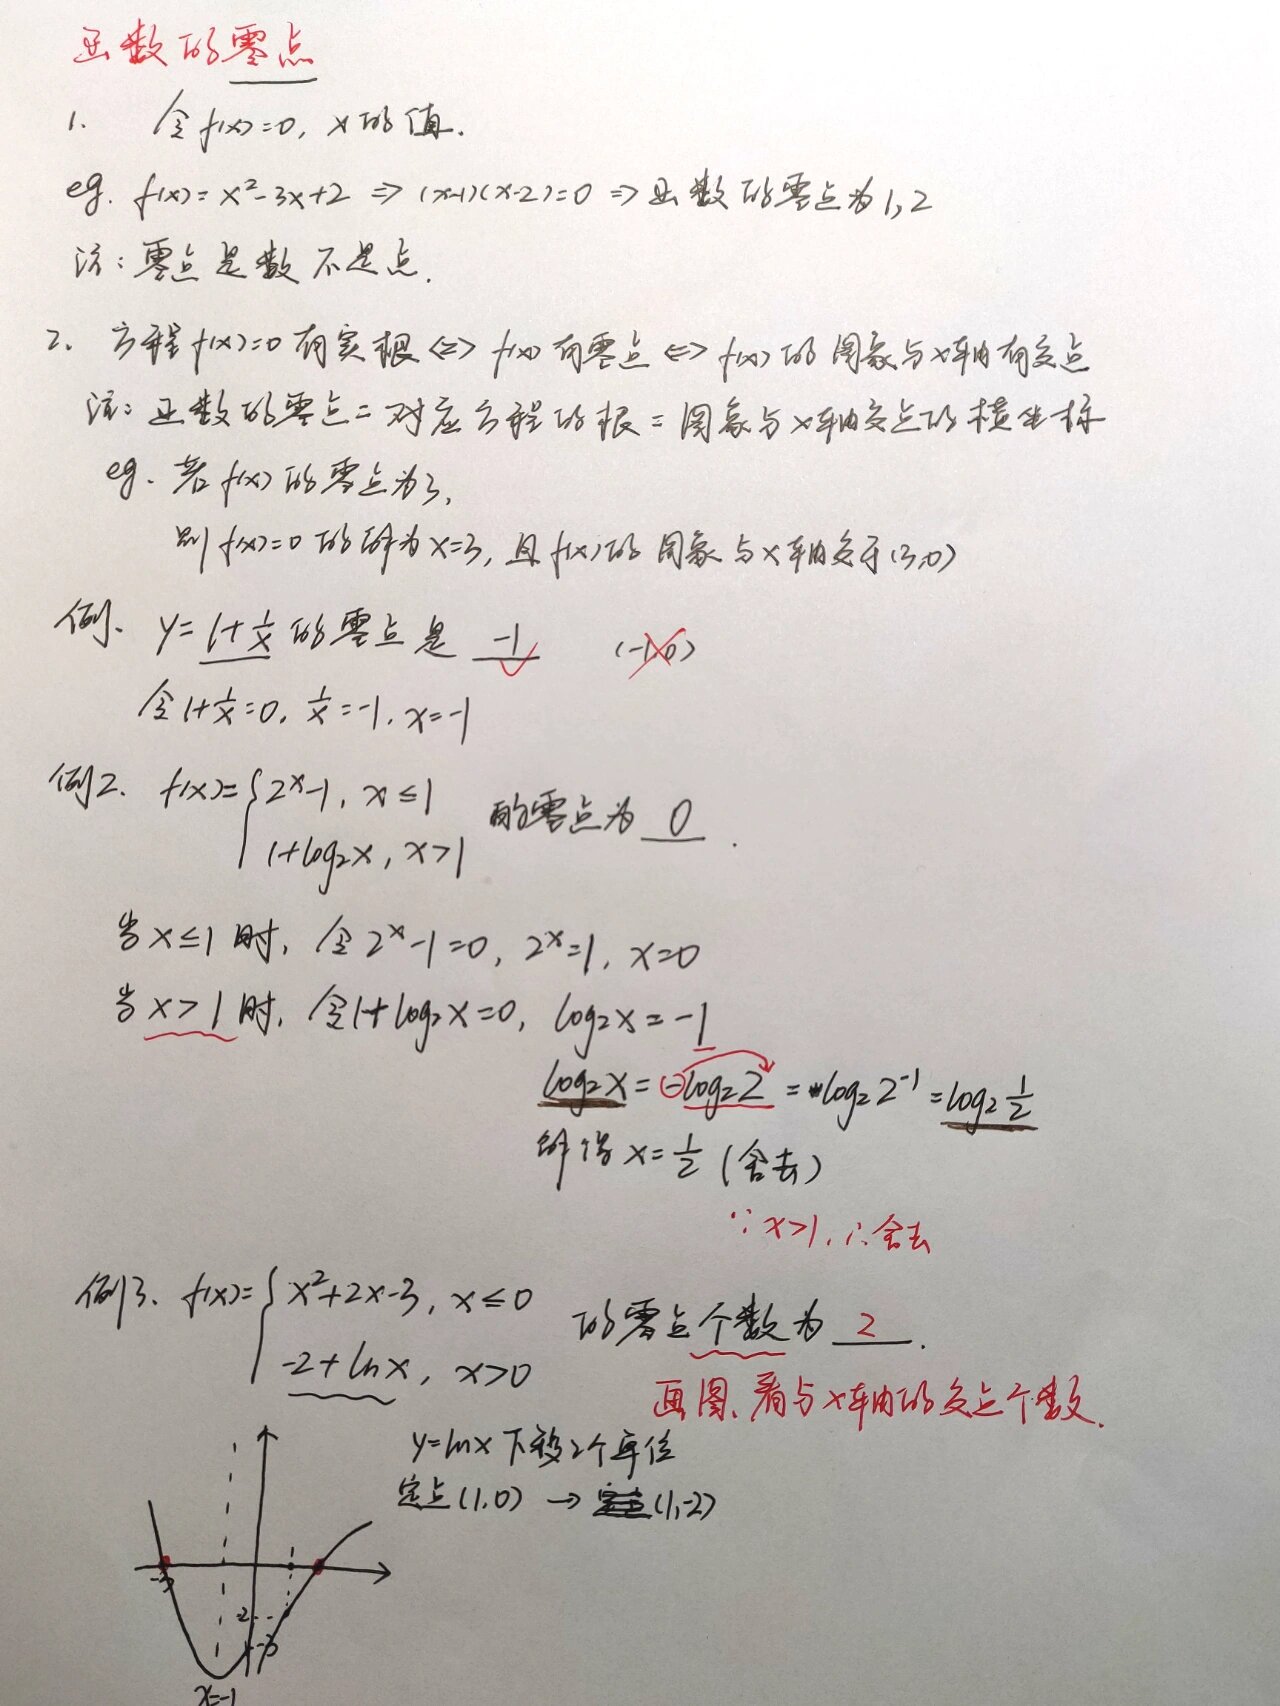 函数的零点
1. 令f(x)=0, x的值.
eg. f(x)=x²-3x+2 ⇒ (x-1)(x-2)=0 ⇒ 函数的零点为1,2
注:零点是数不是点.
2. 方程f(x)=0有实根 ⇔ f(x)有零点 ⇔ f(x)的图象与x轴有交点
注:函数的零点=对应方程的根=图象与x轴交点的横坐标
eg. 若f(x)的零点为3,
则f(x)=0的解为x=3, 且f(x)的图象与x轴交于(3,0)
例. y=1+1/x的零点是 -1 (-1,0)
令1+1/x=0, 1/x=-1, x=-1
例2. f(x)={2^x-1, x≤1
1+log₂x, x>1
的零点为 0 .
当x≤1时, 令2^x-1=0, 2^x=1, x=0
当x>1时, 令1+log₂x=0, log₂x=-1
log₂x=-log₂2=log₂2⁻¹=log₂1/2
解得x=1/2 (舍去)
∵x>1, ∴舍去
例3. f(x)={x²+2x-3, x≤0
-2+lnx, x>0
的零点个数为 2 .
画图、看与x轴的交点个数.
y=lnx下移2个单位
定点(1,0) → (1,-2)
-3
-2
-3
x=-1